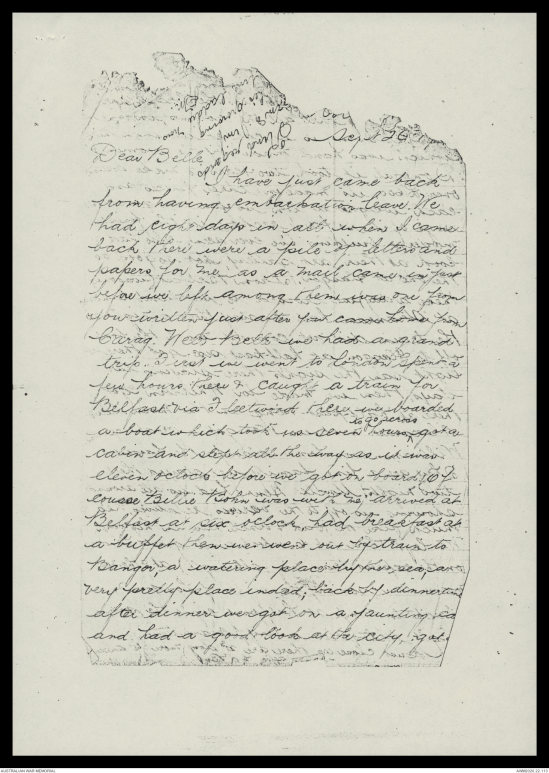 Sept 26
Dear Belle,
I have just came back
from having embarkation leave. We
had eight days in all when I came
back there were a pile of letters and
papers for me, as a mail came in just
before we left among them was one from
you written just after you came home from
Well Belle we had a grand
trip. First we went to London spent a
few hours there & caught a train for
Belfast via Fleetwood there we boarded
to go across
a boat which took us seven hours, got a
cabin and slept all the way as it was
eleven oclock before we got on board, of
course Billie was with me, arrived at
Belfast at six oclock had breakfast at
a buffet then we went out by train to
Bangor, a watering place by the sea, a
very pretty place indeed, back by dinnertime
after dinner we got on a jaunting ca
and had a good look at the city, got
AUSTRALIAN WAR MEMORIAL